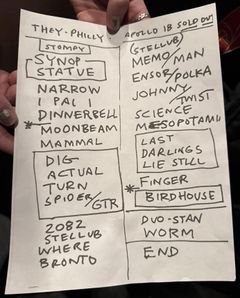 THEY - PHILLY - APOLLO 18 SOLD OUT
STOMPY
SYNOP
STATUE
NARROW
I PAL I
DINNERBELL
*MOONBEAM
MAMMAL
DIG
ACTUAL
TURN
SPIDER/GTR
2082
STELLUB
WHERE
BRONTO
(STELLUB)
MEMO/MAN
ENSOR/POLKA
JOHNNY
TWIST
SCIENCE
MESOPOTAMI
LAST
DARLINGS
LIE STILL
*FINGER
BIRDHOUSE
DUO-STAN
WORM
END